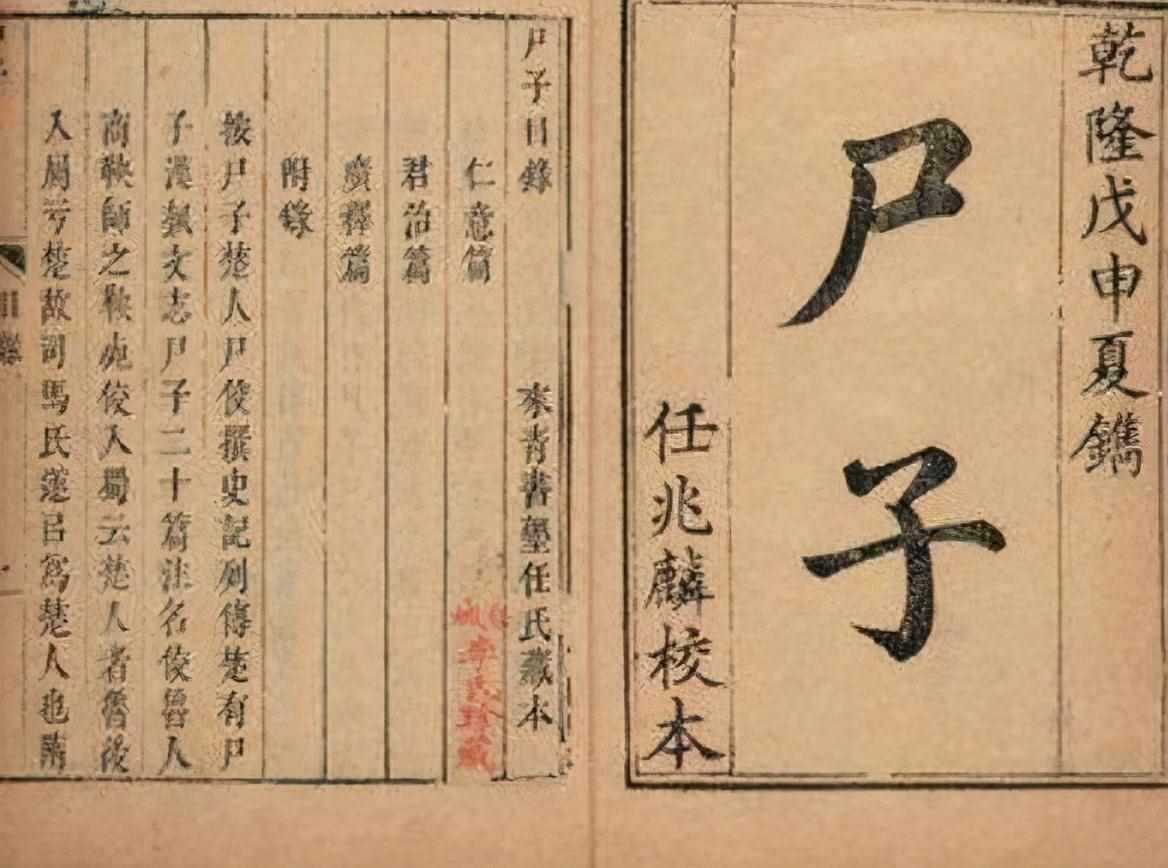 乾隆戊申夏鐫
尸子
任兆麟校本
尸子目錄 來青書塾任氏藏本
仁意篇
君治篇
廣釋篇
附錄
按尸子楚人尸佼撰史記列傳楚有尸
子漢執文志尸子二十篇注名佼魯人
商鞅師之鞅死佼入蜀云楚人者魯後
入屬于楚故司馬氏遂㠯爲楚人也隋